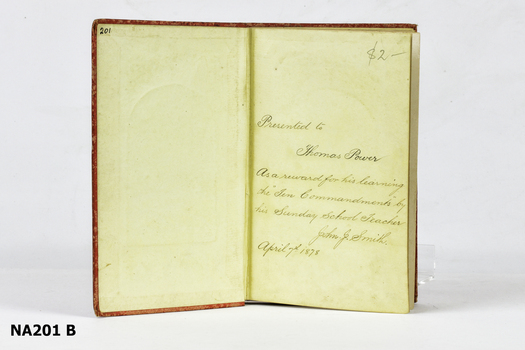 201
$2-
Presented to
Thomas Power
As a reward for his learning
the "Ten Commandments" by
his Sunday School Teacher
John J. Smith.
April 7th 1878
NA201 B